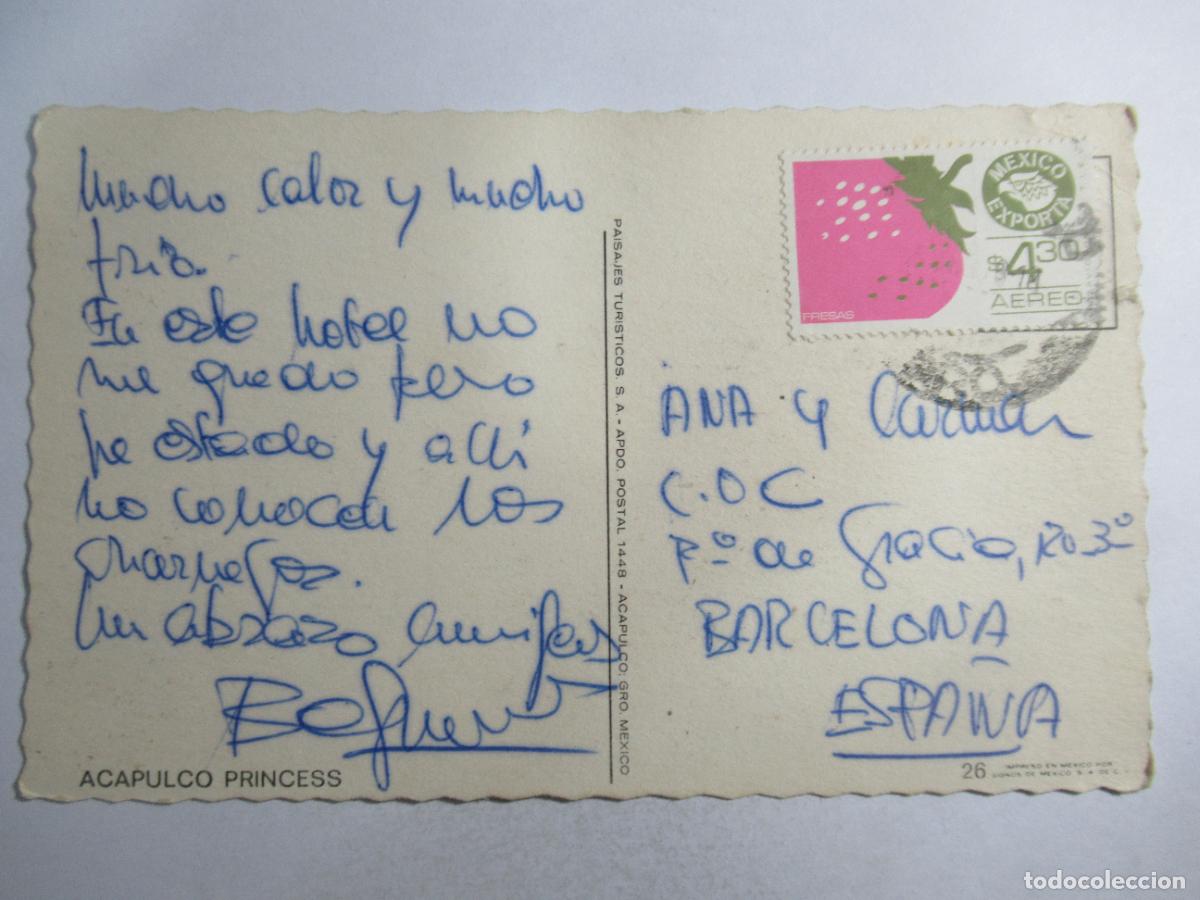 Mucho calor y mucho
frio.
En este hotel no
me quedo pero
he estado y alli
no conocen los
charnegos.
Un abrazo amigas
ACAPULCO PRINCESS
PAISAJES TURISTICOS, S. A. - APDO. POSTAL 1448 - ACAPULCO, GRO. MEXICO
MEXICO
EXPORTA
$4.30
AEREO
FRESAS
ANA y Carmen
C.O.C
Pº de Gracia, 20 3º
BARCELONA
ESPAÑA
26
IMPRESO EN MEXICO POR
S. A. DE C.
todocoleccion